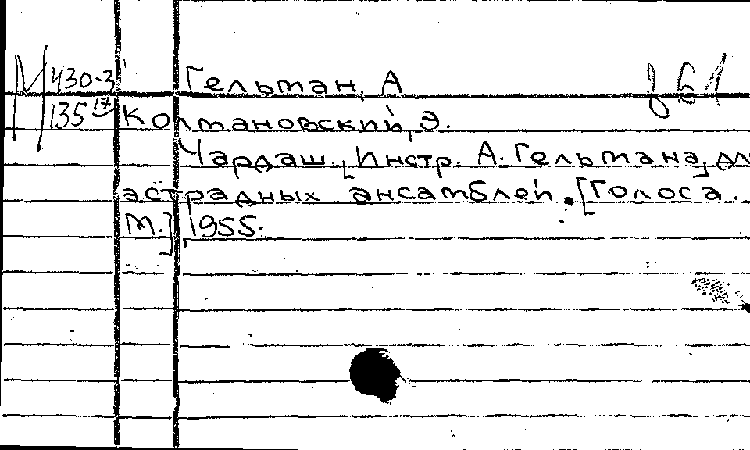 М 430-3 Гельман, А
135 17 Колмановский, Э.
Чардаш. [Инстр. А. Гельмана] дл
эстрадных ансамблей. [Голоса.
М.], 1955.